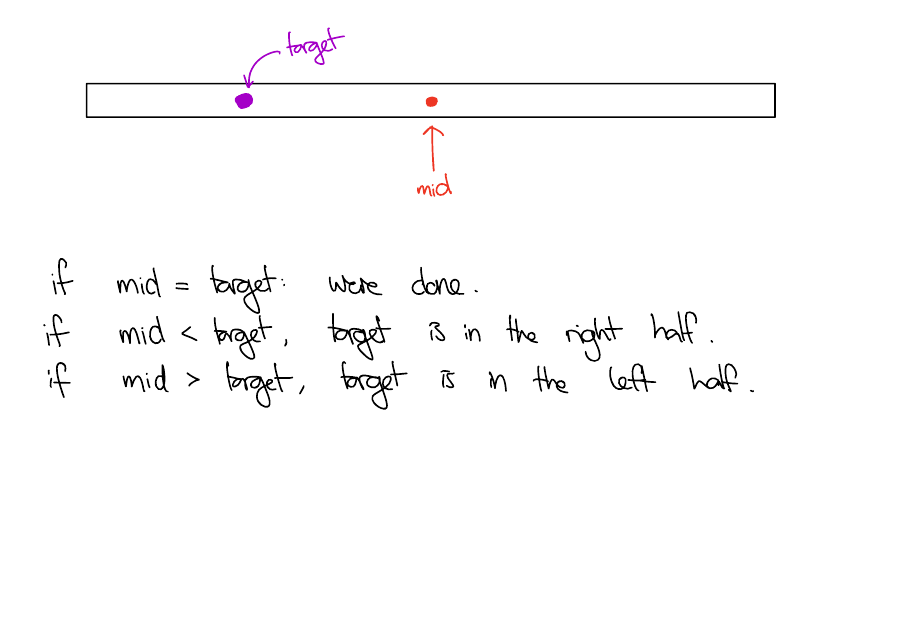 target
mid
if mid = target: were done.
if mid < target, target is in the right half.
if mid > target, target is in the left half.